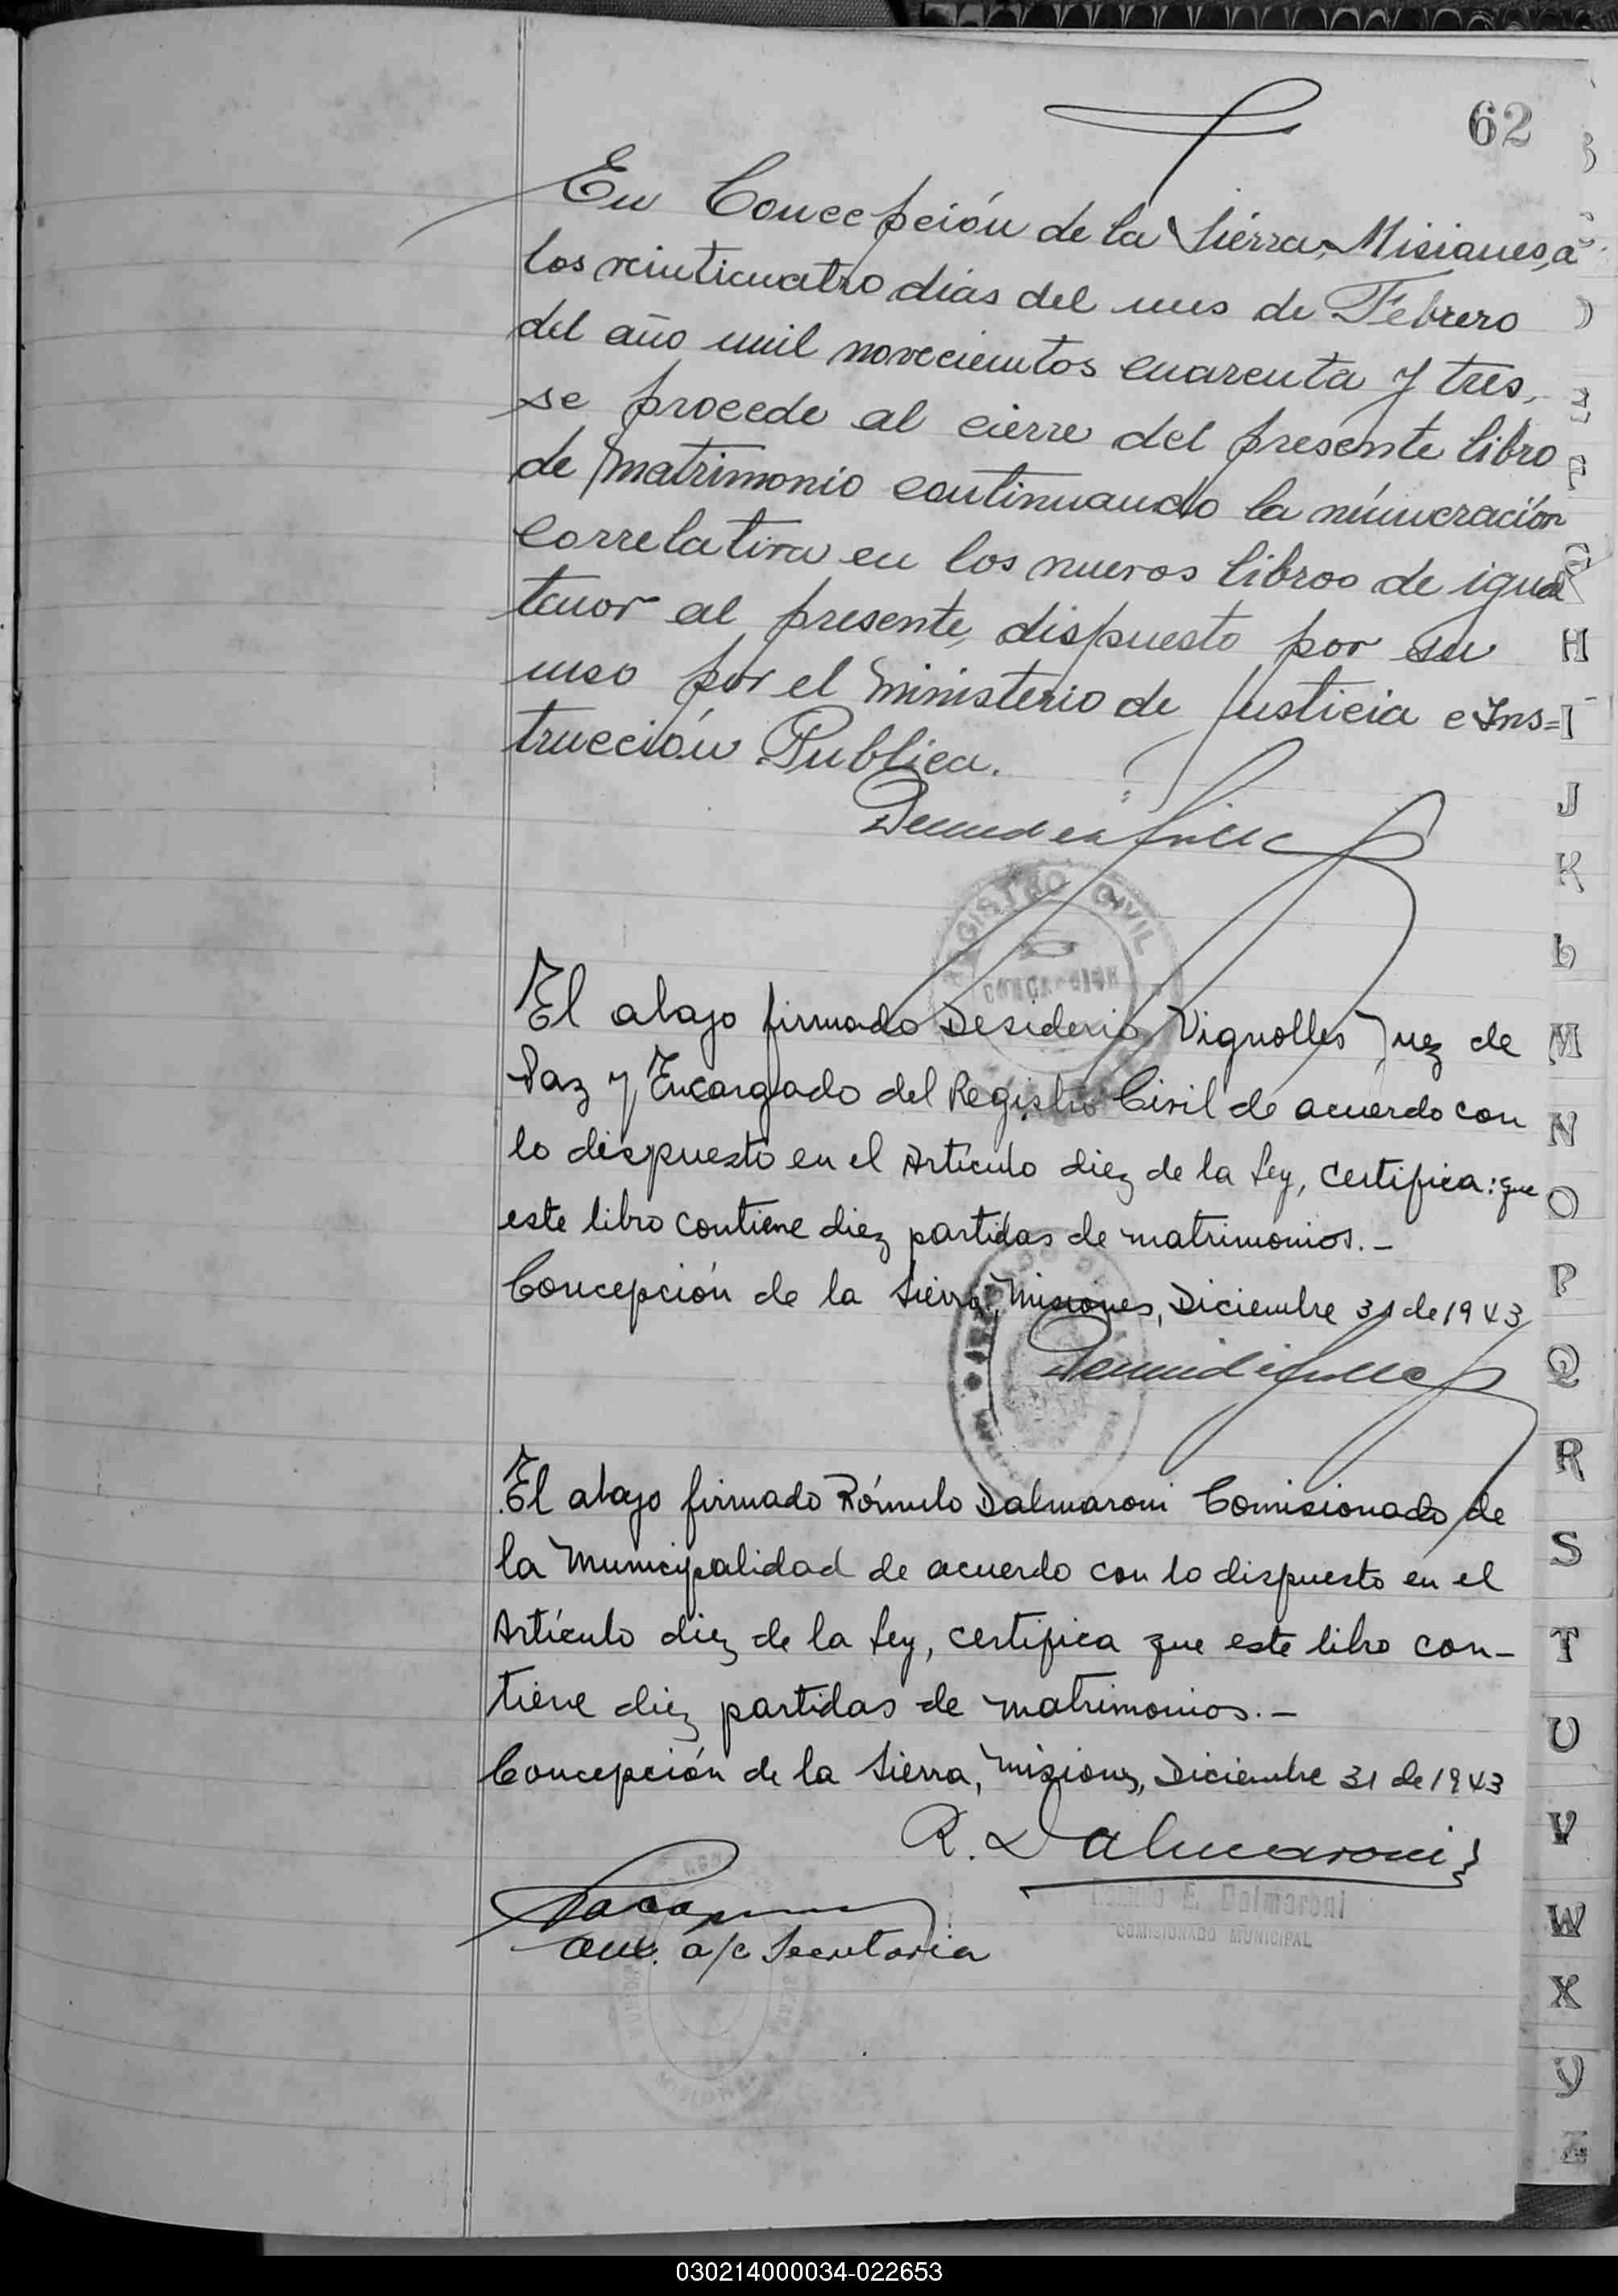 62
En Concepción de la Sierra, Misiones, a
los veinticuatro dias del mes de Febrero
del año mil novecientos cuarenta y tres,
se procede al cierre del presente libro
de matrimonio continuando la númeración
correlativa en los nuevos libros de igual
tenor al presente, dispuesto por su
uso por el Ministerio de Justicia e Ins=
trucción Publica.
REGISTRO CIVIL
CONCEPCION
El abajo firmado Desiderio Vignolles Juez de
Paz y Encargado del Registro Civil de acuerdo con
lo dispuesto en el Artículo diez de la Ley, certifica: que
este libro contiene diez partidas de matrimonios.-
Concepción de la Sierra, Misiones, Diciembre 31 de 1943
El abajo firmado Rómulo Dalmaroni Comisionado de
la Municipalidad de acuerdo con lo dispuesto en el
Artículo diez de la Ley, certifica que este libro con-
tiene diez partidas de matrimonios.-
Concepción de la Sierra, Misiones, Diciembre 31 de 1943
R. Dalmaroni
Romulo E. Dalmaroni
COMISIONADO MUNICIPAL
aux. a/c Secretaria
MISIONES
H
I
J
K
L
M
N
O
P
Q
R
S
T
U
V
W
X
Y
Z
030214000034-022653